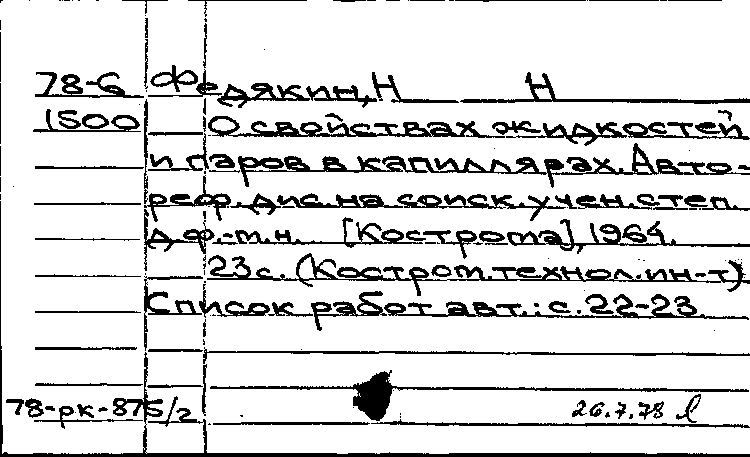 78-6 Федякин, Н Н
1500 О свойствах жидкостей
и паров в капиллярах. Авто-
реф. дис. на соиск. учен. степ.
д.ф.-т.н. [Кострома], 1964.
23с. (Костром. технол. ин-т)
Список работ авт.: с. 22-23
78-рк-875/2 26.7.78